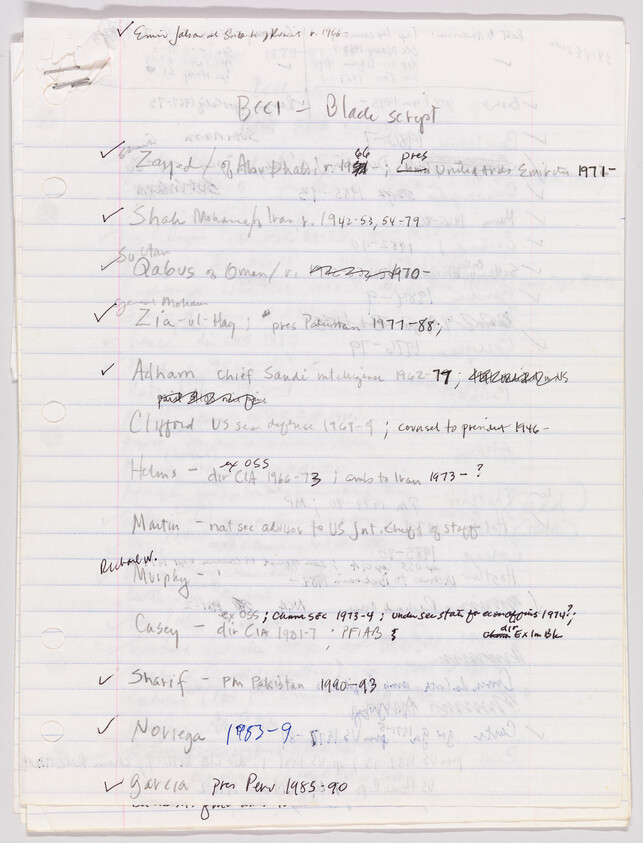 ✓ Emir Jaber al Sabah of Kuwait r. 1966-
BCCI - Black script
✓ Zayed / of Abu Dhabi r. 1966 - ; pres United Arab Emirates 1971-
✓ Shah Mohame/of Iran r. 1942-53, 54-79
Sultan
✓ Qabus of Oman / r. 1970-
general Moham
✓ Zia-ul-Haq ; pres Pakistan 1977-88;
✓ Adham chief Saudi intelligence 1962-79;
Clifford US sec defense 1968-9 ; counsel to president 1946-
ex OSS
Helms - dir CIA 1966-73 ; amb to Iran 1973-?
Martin - nat sec advisor to US Jnt. Chiefs of staff
Richard W.
Murphy -
ex OSS ; Chmn SEC 1973-4 ; undersec state for econ affairs 1974?;
Casey - dir CIA 1981-7 ; PFIAB ; dir ExIm Bk
✓ Sharif - PM Pakistan 1990-93
✓ Noriega 1983-9
✓ Garcia pres Peru 1985-90